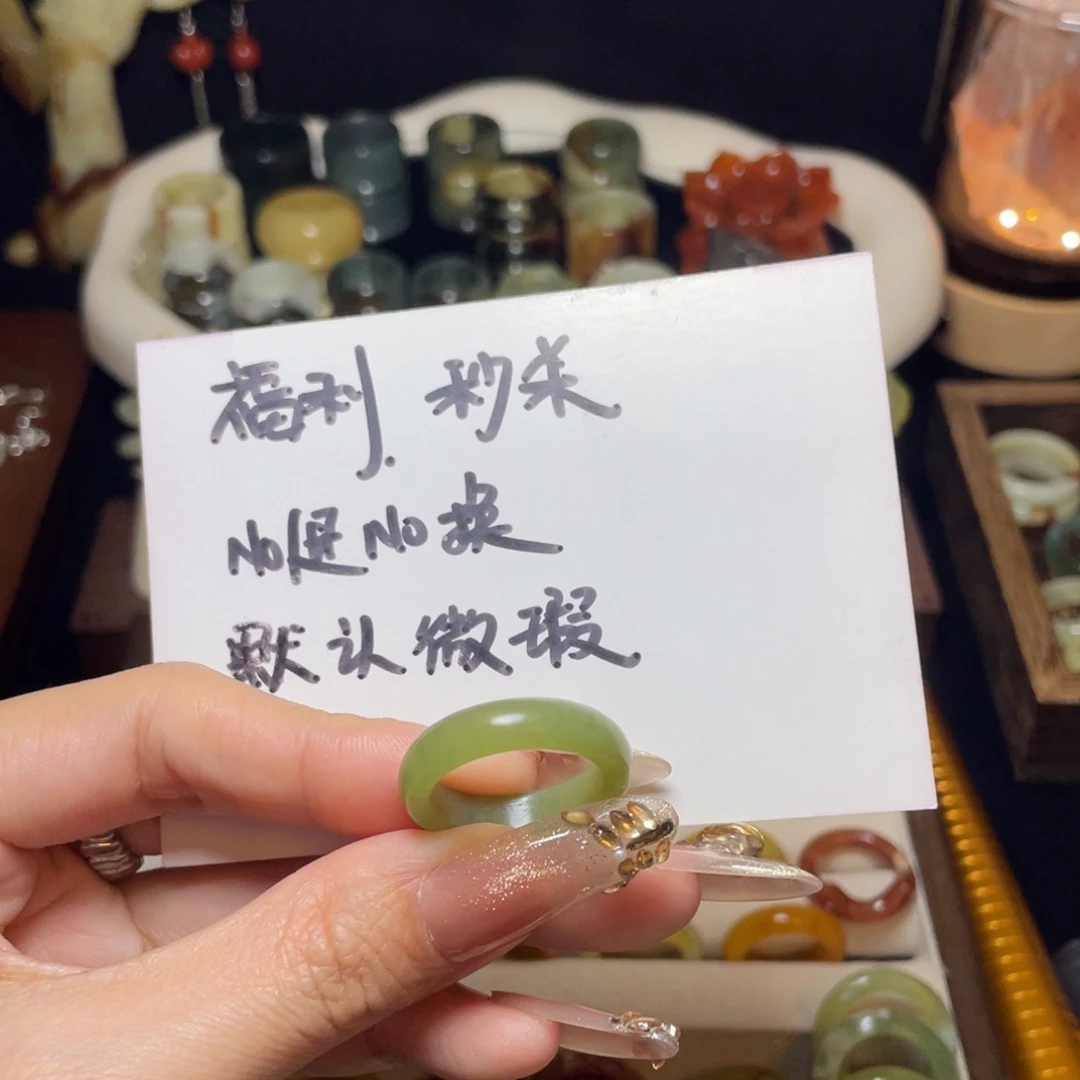 福利 秒杀
No退No换
默认微瑕